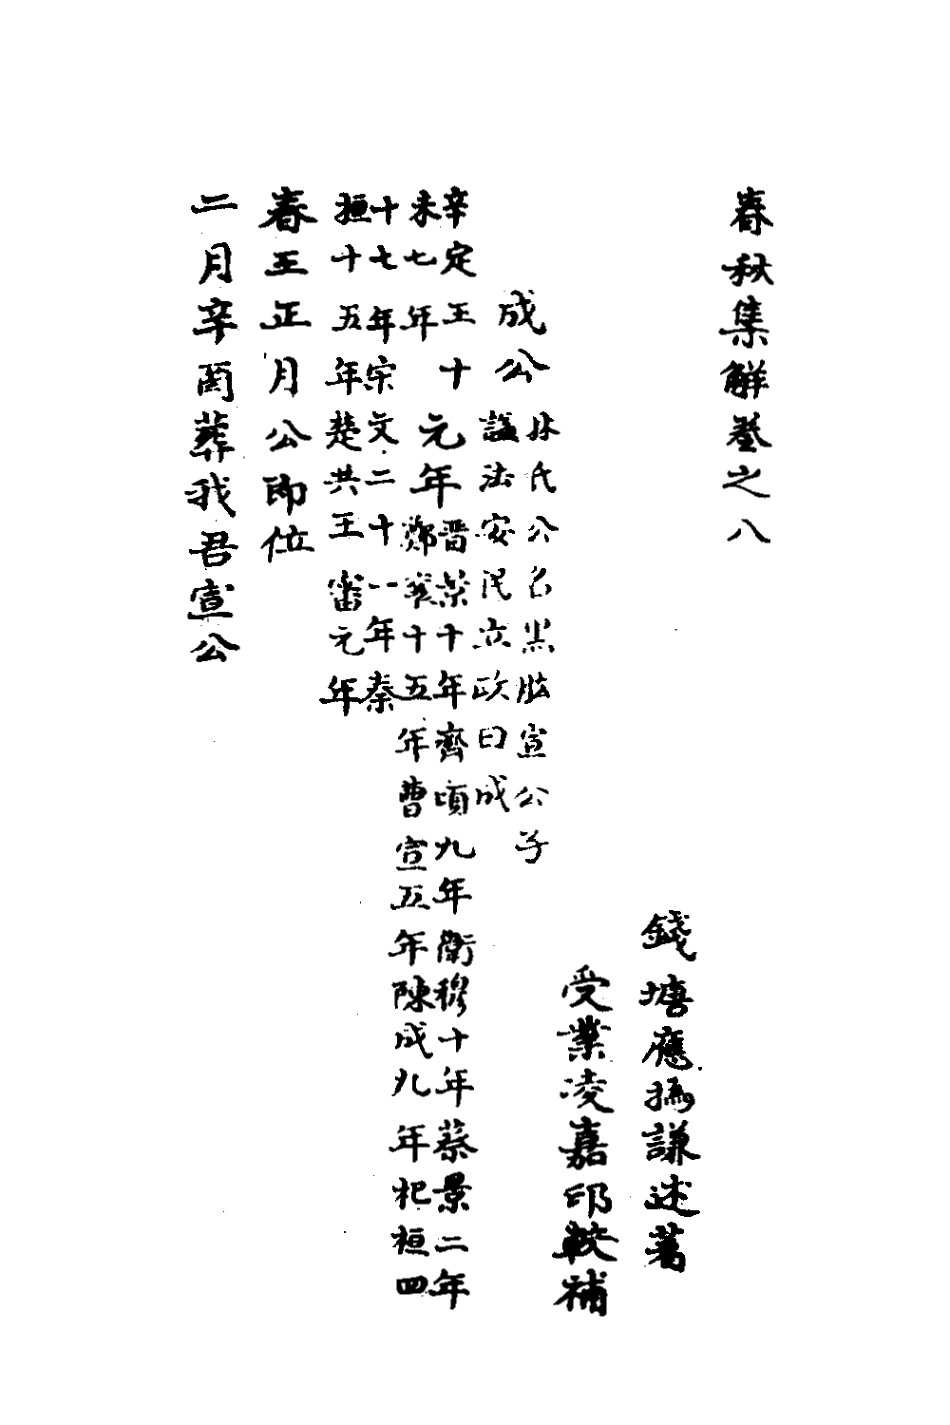 春秋集解卷之八
錢塘應撝謙述著
受業凌嘉印較補
成公
林氏公名黑肱宣公子
諡法安民立政曰成
辛未
定王十七年
元年
晉景十年齊頃九年衛穆十年蔡景二年
鄭襄十五年曹宣五年陳成九年杞桓四
十七年宋文二十一年秦
桓十五年楚共王審元年
春王正月公即位
二月辛酉葬我君宣公